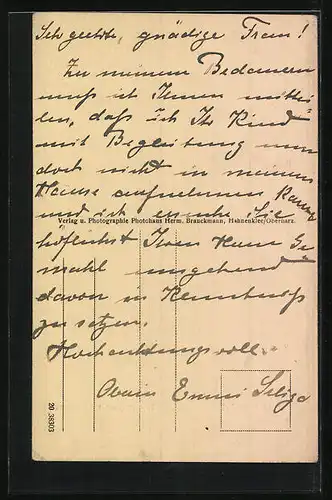 Sehr geehrte, gnädige Frau!
Zu meinem Bedauern
muß ich Ihnen mittei-
len, daß ich Ihr Kind
mit Begleitung nun
doch nicht in meinem
Hause aufnehmen kann
und ich ersuche Sie
Verlag u. Photographie Photohaus Herm. Brauckmann, Hahnenklee/Oberharz.
höflichst Ihren Herrn Ge-
mahl umgehend
davon in Kenntniß
zu setzen.
Hochachtungsvoll
20 38303